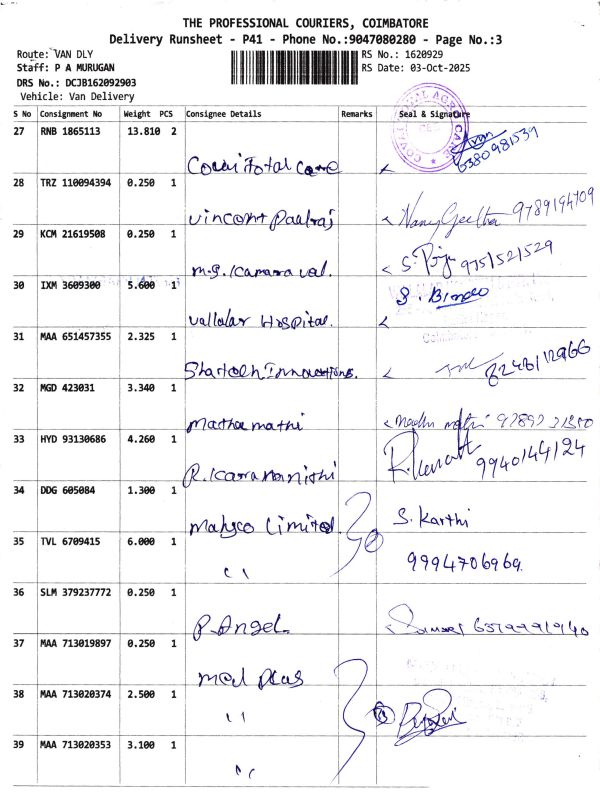 THE PROFESSIONAL COURIERS, COIMBATORE
Delivery Runsheet - P41 - Phone No.:9047080280 - Page No.:3
Route: VAN DLY RS No.: 1620929
Staff: P A MURUGAN RS Date: 03-Oct-2025
DRS No.: DCJB162092903
Vehicle: Van Delivery
S No Consignment No Weight PCS Consignee Details Remarks Seal & Signature
27 RNB 1865113 13.810 2
Total Care 6380981539
28 TRZ 110094394 0.250 1
Vincent Paulraj 9789194709
29 KCM 21619508 0.250 1
9751521529
30 IXM 3609300 5.600 1
Vallalar Hospital.
31 MAA 651457355 2.325 1
Innovations.
32 MGD 423031 3.340 1
Mathamathi
33 HYD 93130686 4.260 1
9940144124
34 DDG 605084 1.300 1
Mahyco Limited S. Karthi
35 TVL 6709415 6.000 1
" 9994706969
36 SLM 379237772 0.250 1
P. Angel
37 MAA 713019897 0.250 1
Med Plus
38 MAA 713020374 2.500 1
"
39 MAA 713020353 3.100 1
"